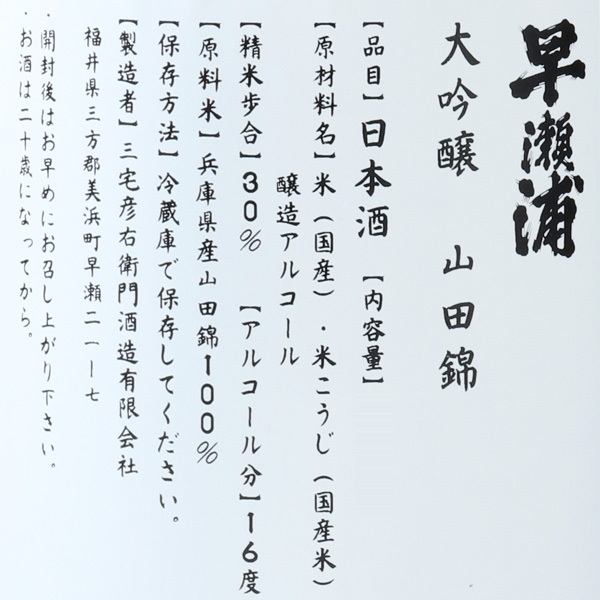 早瀬浦
大吟醸 山田錦
【品目】日本酒 【内容量】
【原材料名】米（国産）・米こうじ（国産米）
醸造アルコール
【精米歩合】30% 【アルコール分】16度
【原料米】兵庫県産山田錦100%
【保存方法】冷蔵庫で保存してください。
【製造者】三宅彦右衛門酒造有限会社
福井県三方郡美浜町早瀬二一ー七
・開封後はお早めにお召し上がり下さい。
・お酒は二十歳になってから。